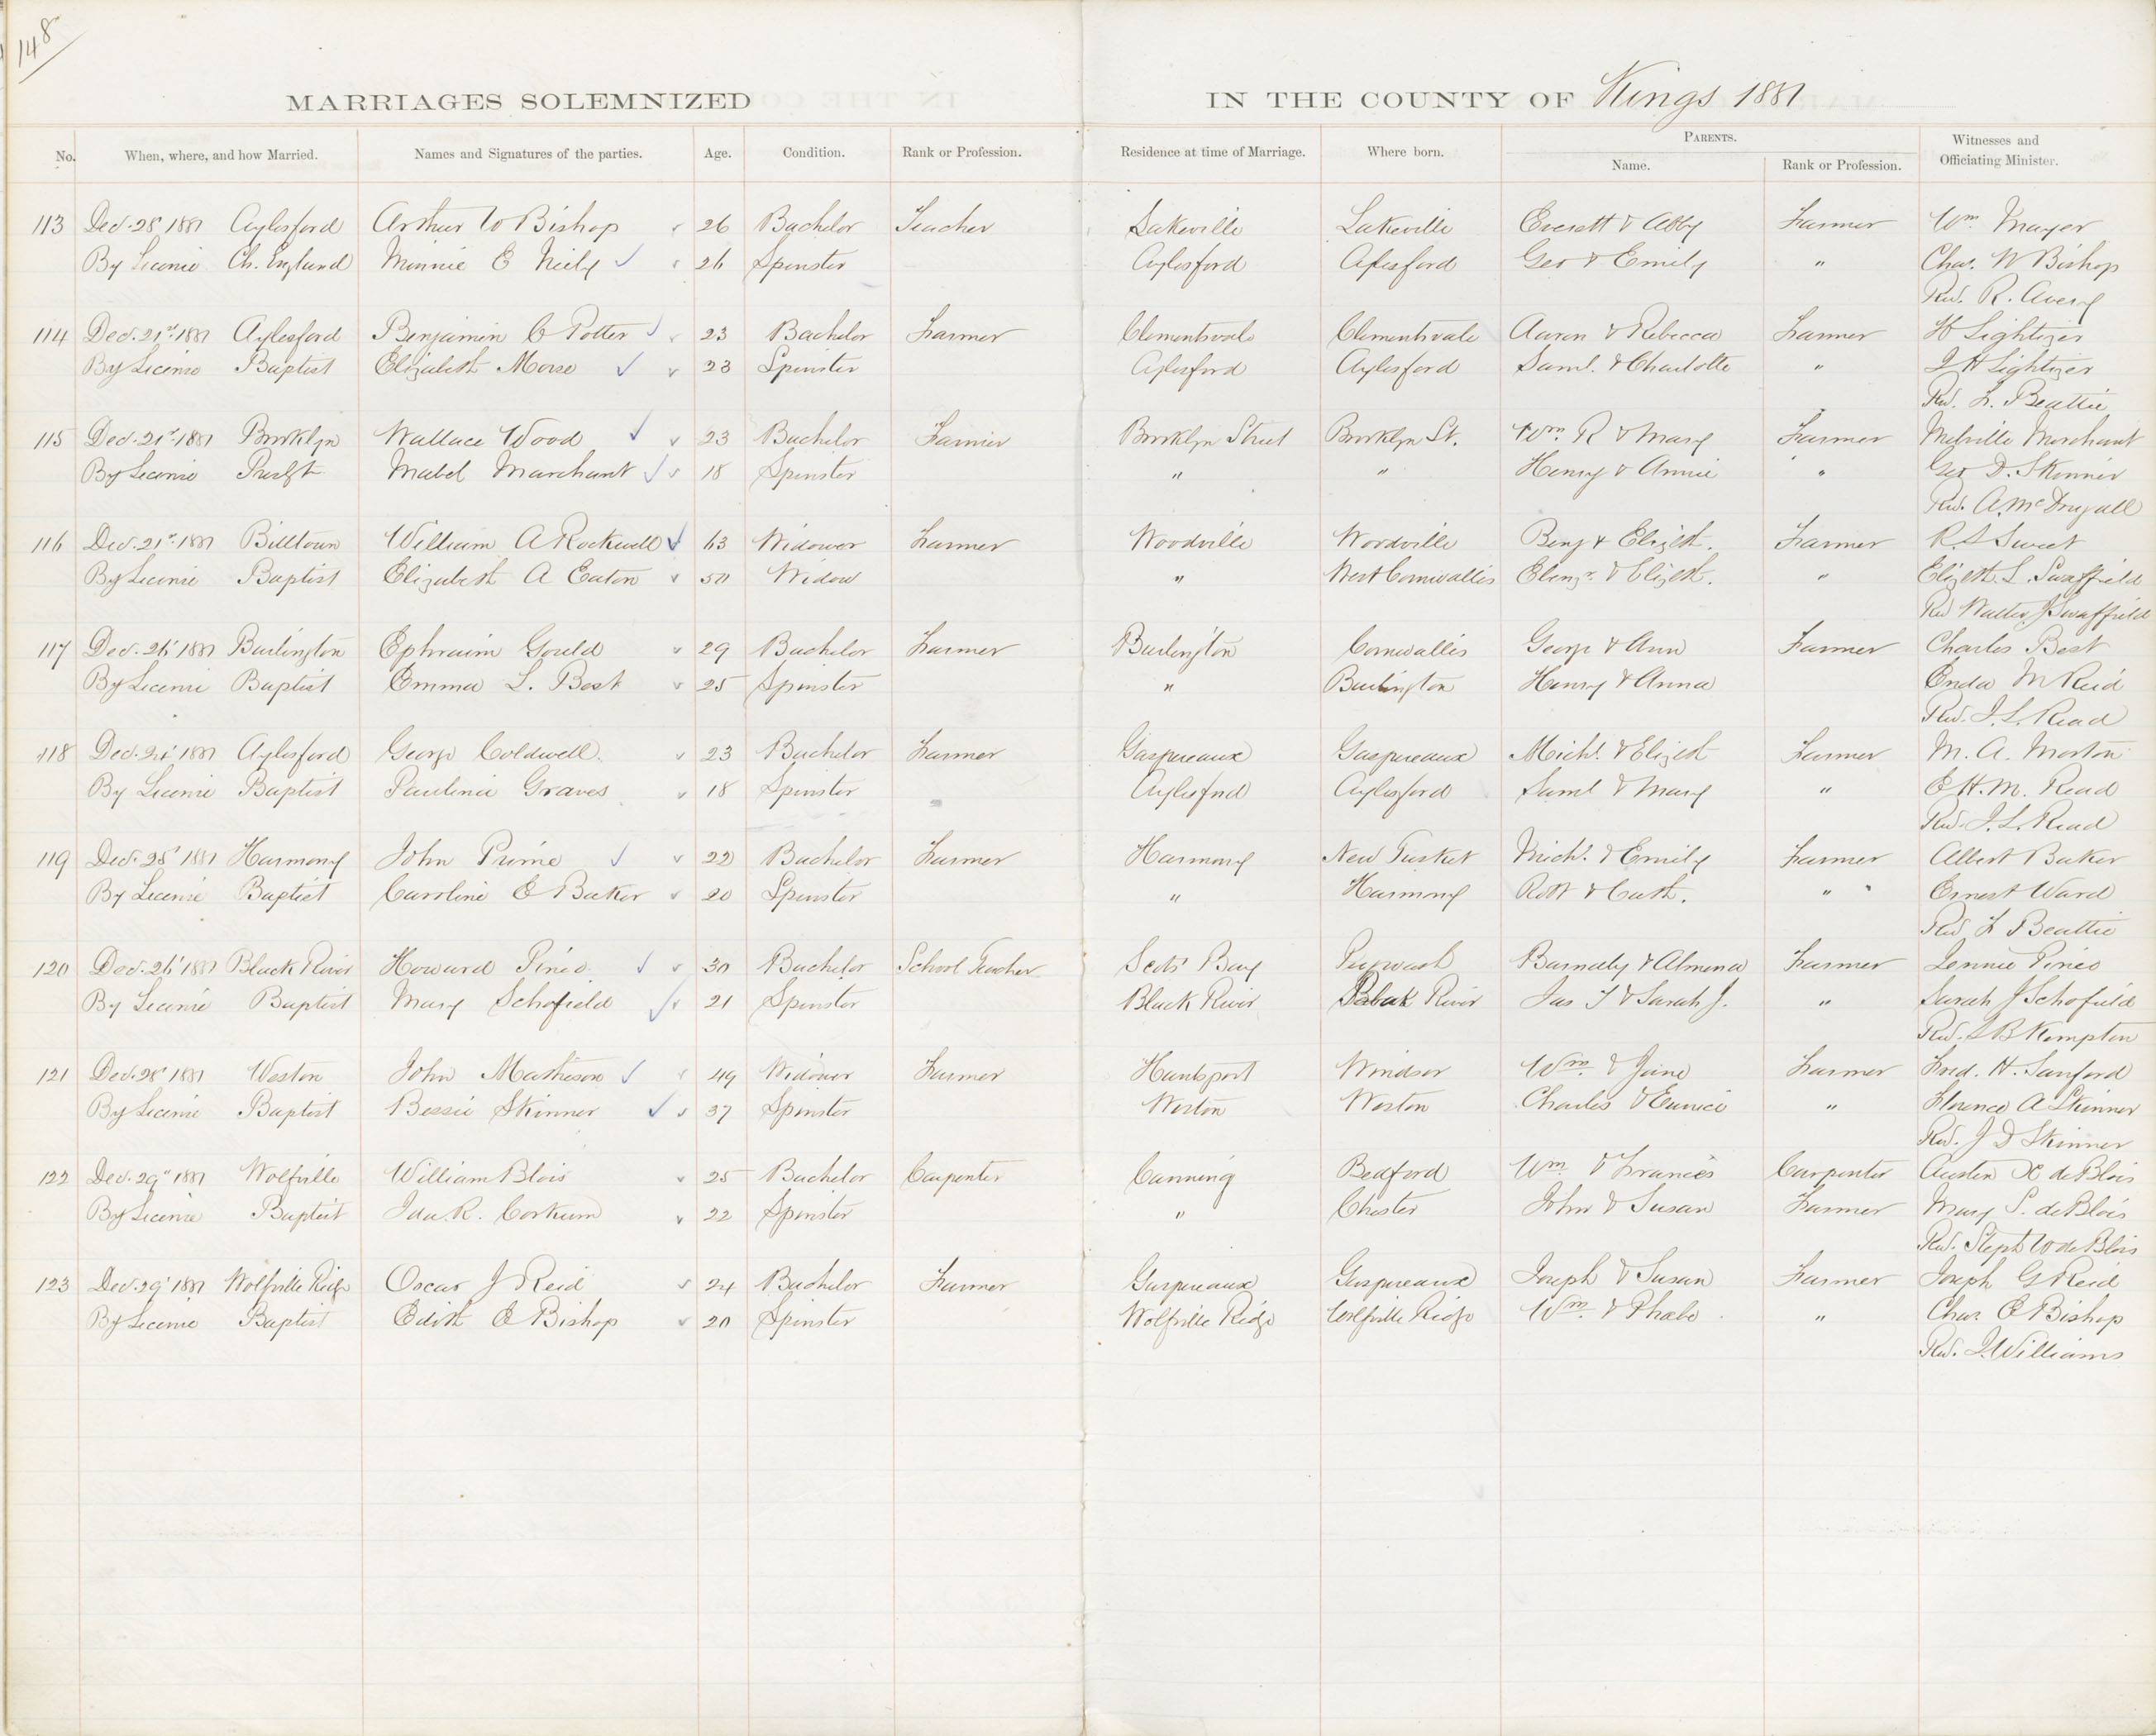 148
MARRIAGES SOLEMNIZED IN THE COUNTY OF Kings 1881
No. When, where, and how Married. Names and Signatures of the parties. Age. Condition. Rank or Profession. Residence at time of Marriage. Where born. PARENTS. Name. Rank or Profession. Witnesses and Officiating Minister.
113 Dec. 28 1881 Aylesford Arthur W Bishop 26 Bachelor Teacher Lakeville Lakeville Everett & Abby Farmer Wm. Mayer
By License Ch. England Minnie E Neily 26 Spinster Aylesford Aylesford Geo & Emily " Chas. W Bishop
Rev. R. Avery
114 Dec. 21st 1881 Aylesford Benjamin C Potter 23 Bachelor Farmer Clementsvale Clementsvale Aaron & Rebecca Farmer H Lightizer
By License Baptist Elizabeth Morse 23 Spinster Aylesford Aylesford Saml. & Charlotte " J H Lightizer
Rev. F. Beattie
115 Dec. 21st 1881 Brooklyn Wallace Wood 23 Bachelor Farmer Brooklyn Street Brooklyn St. Wm. R & Mary Farmer Melville Marchant
By License Presbt Mabel Marchant 18 Spinster " " Henry & Annie " Geo D. Skinner
Rev. A. McDougall
116 Dec. 21st 1881 Billtown William A Rockwell 63 Widower Farmer Woodville Woodville Benj & Elizth. Farmer R. S Sweet
By License Baptist Elizabeth A Eaton 50 Widow " West Cornwallis Ebenzr. & Elizth. " Elizth. L. Swaffield
Rev Walter J Swaffield
117 Dec. 26 1881 Burlington Ephraim Gould 29 Bachelor Farmer Burlington Cornwallis George & Ann Farmer Charles Best
By License Baptist Emma L. Best 25 Spinster " Burlington Henry & Anna Enda M Reid
Rev. J. L. Read
118 Dec. 24 1881 Aylesford George Coldwell 23 Bachelor Farmer Gaspereaux Gaspereaux Michl. & Elizth Farmer M. A. Morton
By License Baptist Paulina Graves 18 Spinster Aylesford Aylesford Saml & Mary " E H. M. Read
Rev. J. L. Read
119 Dec. 28 1881 Harmony John Prime 22 Bachelor Farmer Harmony New Tusket Michl. & Emily Farmer Albert Baker
By License Baptist Caroline E Baker 20 Spinster " Harmony Robt & Cath. " Ernest Ward
Rev F Beattie
120 Dec. 26 1881 Black River Howard Pineo 30 Bachelor School Teacher Scots Bay Pugwash Barnaby & Almena Farmer Jennie Pineo
By License Baptist Mary Schofield 21 Spinster Black River Black River Jas T & Sarah J. " Sarah J Schofield
Rev. S B Kempton
121 Dec. 28 1881 Weston John Matheson 49 Widower Farmer Hantsport Windsor Wm. & Jane Farmer Fred. H. Sanford
By License Baptist Bessie Skinner 37 Spinster Weston Weston Charles & Eunice " Florence A Skinner
Rev. J D Skinner
122 Dec. 29" 1881 Wolfville William Blois 25 Bachelor Carpenter Canning Bedford Wm & Frances Carpenter Austen K de Blois
By License Baptist Ida R. Corkum 22 Spinster " Chester John & Susan Farmer Mary S. de Blois
Rev. Steph W de Blois
123 Dec. 29 1881 Wolfville Ridge Oscar J Reid 24 Bachelor Farmer Gaspereaux Gaspereaux Joseph & Susan Farmer Joseph G Reid
By License Baptist Edith E Bishop 20 Spinster Wolfville Ridge Wolfville Ridge Wm. & Phabe " Chas. E Bishop
Rev. J. Williams